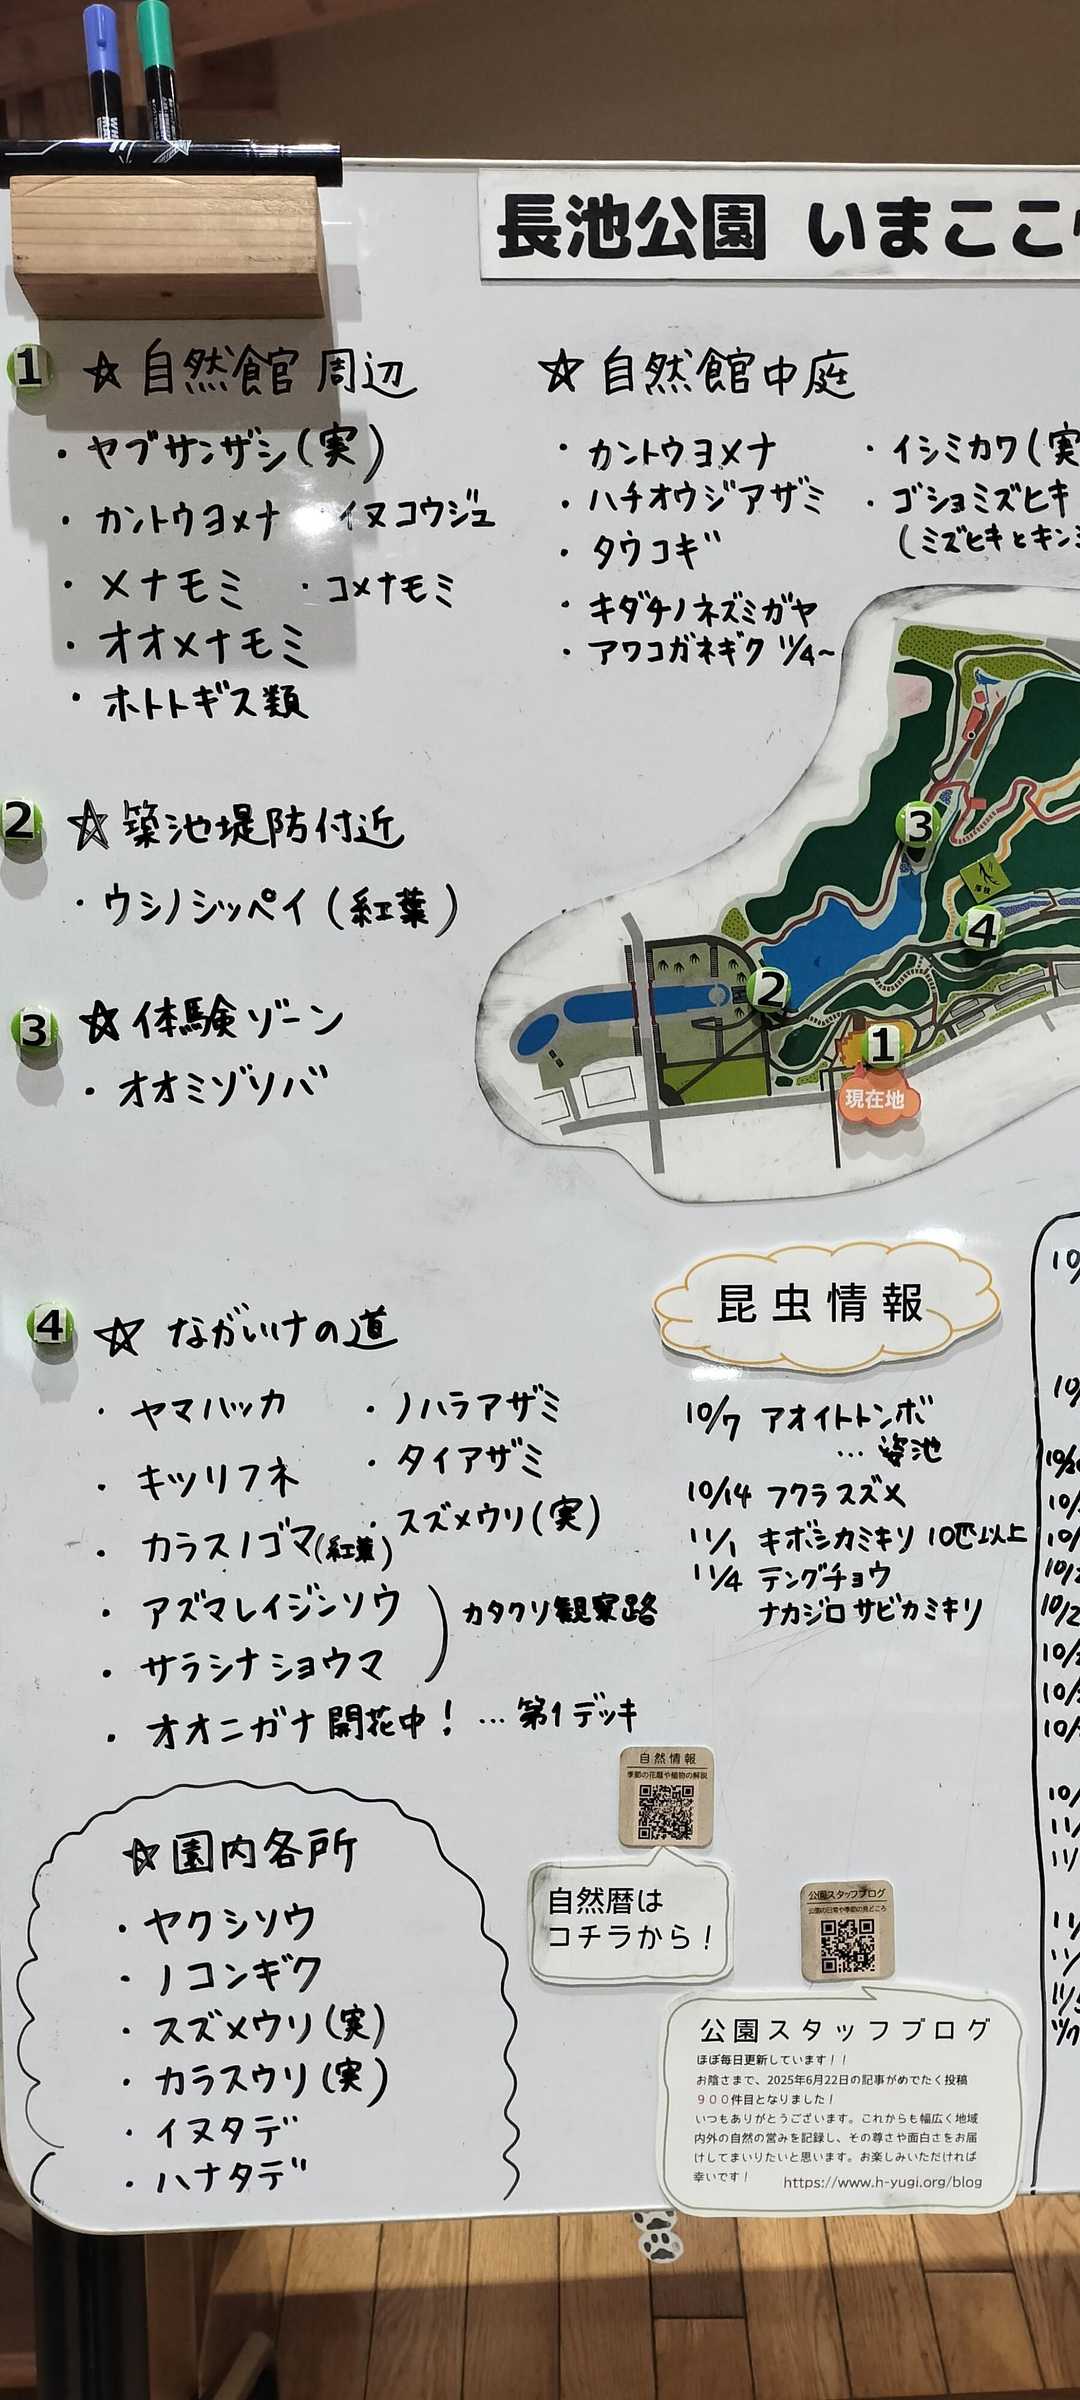 長池公園 いまここ
1 ☆自然館周辺
・ヤブサンザシ(実)
・カントウヨメナ ・イヌコウジュ
・メナモミ ・コメナモミ
・オオメナモミ
・ホトトギス類
☆自然館中庭
・カントウヨメナ ・イシミカワ(実
・ハチオウジアザミ ・ゴショミズヒキ
(ミズヒキとキンミ
・タウコギ
・キダチノネズミガヤ
・アワコガネギク 11/4~
2 ☆築池堤防付近
・ウシノシッペイ(紅葉)
3 ☆体験ゾーン
・オオミゾソバ
3
4
2
1
現在地
4 ☆ながいけの道
・ヤマハッカ ・ノハラアザミ
・キツリフネ ・タイアザミ
・カラスノゴマ(紅葉) ・スズメウリ(実)
・アズマレイジンソウ
・サラシナショウマ
カタクリ観察路
・オオニガナ開花中! …第1デッキ
昆虫情報
10/7 アオイトトンボ
…姿池
10/14 フクラスズメ
11/1 キボシカミキリ 10匹以上
11/4 テングチョウ
ナカジロサビカミキリ
☆園内各所
・ヤクシソウ
・ノコンギク
・スズメウリ(実)
・カラスウリ(実)
・イヌタデ
・ハナタデ
自然情報
季節の花暦や植物の解説
自然暦は
コチラから!
公園スタッフブログ
公園の日常や季節の見どころ
公園スタッフブログ
ほぼ毎日更新しています!!
お陰さまで、2025年6月22日の記事がめでたく投稿
900件目となりました!
いつもありがとうございます。これからも幅広く地域
内外の自然の営みを記録し、その尊さや面白さをお届
けしてまいりたいと思います。お楽しみいただければ
幸いです! https://www.h-yugi.org/blog